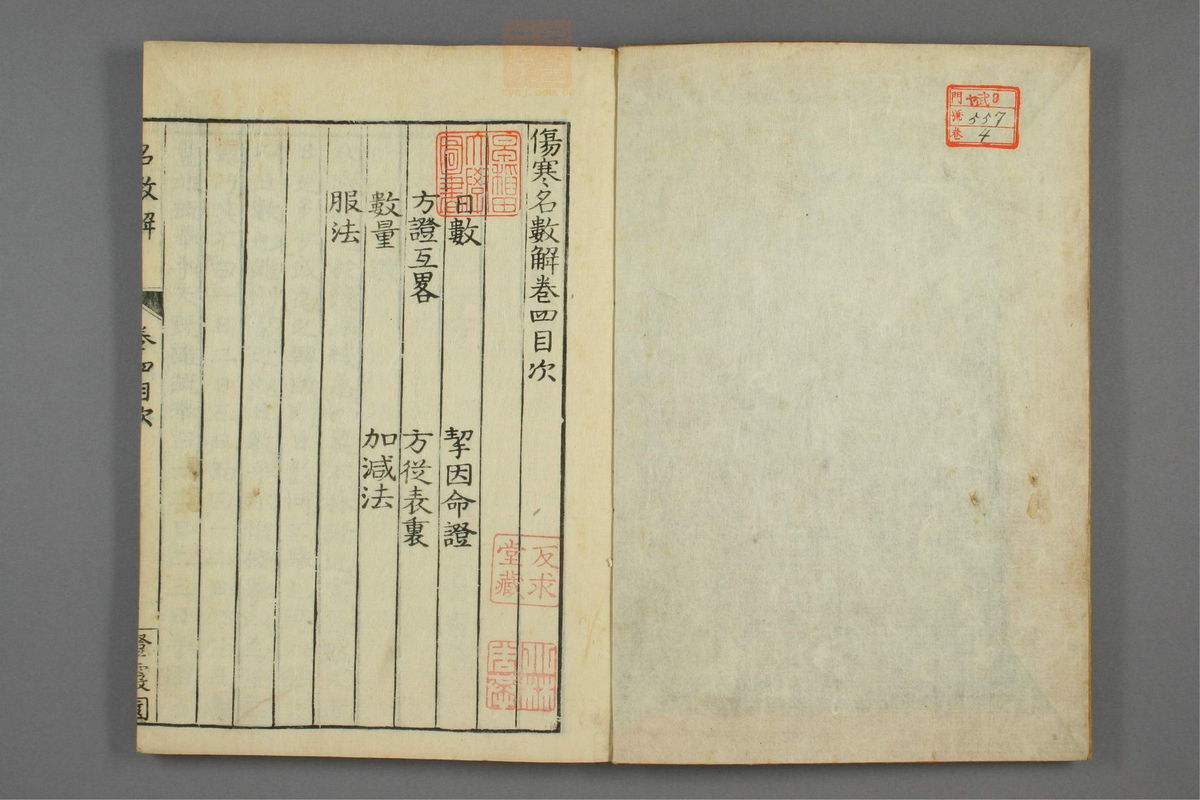 門 ヤ09
號 557
卷 4
傷寒名數解卷四目次
日數 挈因命證
方證互畧 方從表裏
數量 加減法
服法
反求
堂藏
名數解 卷四目次